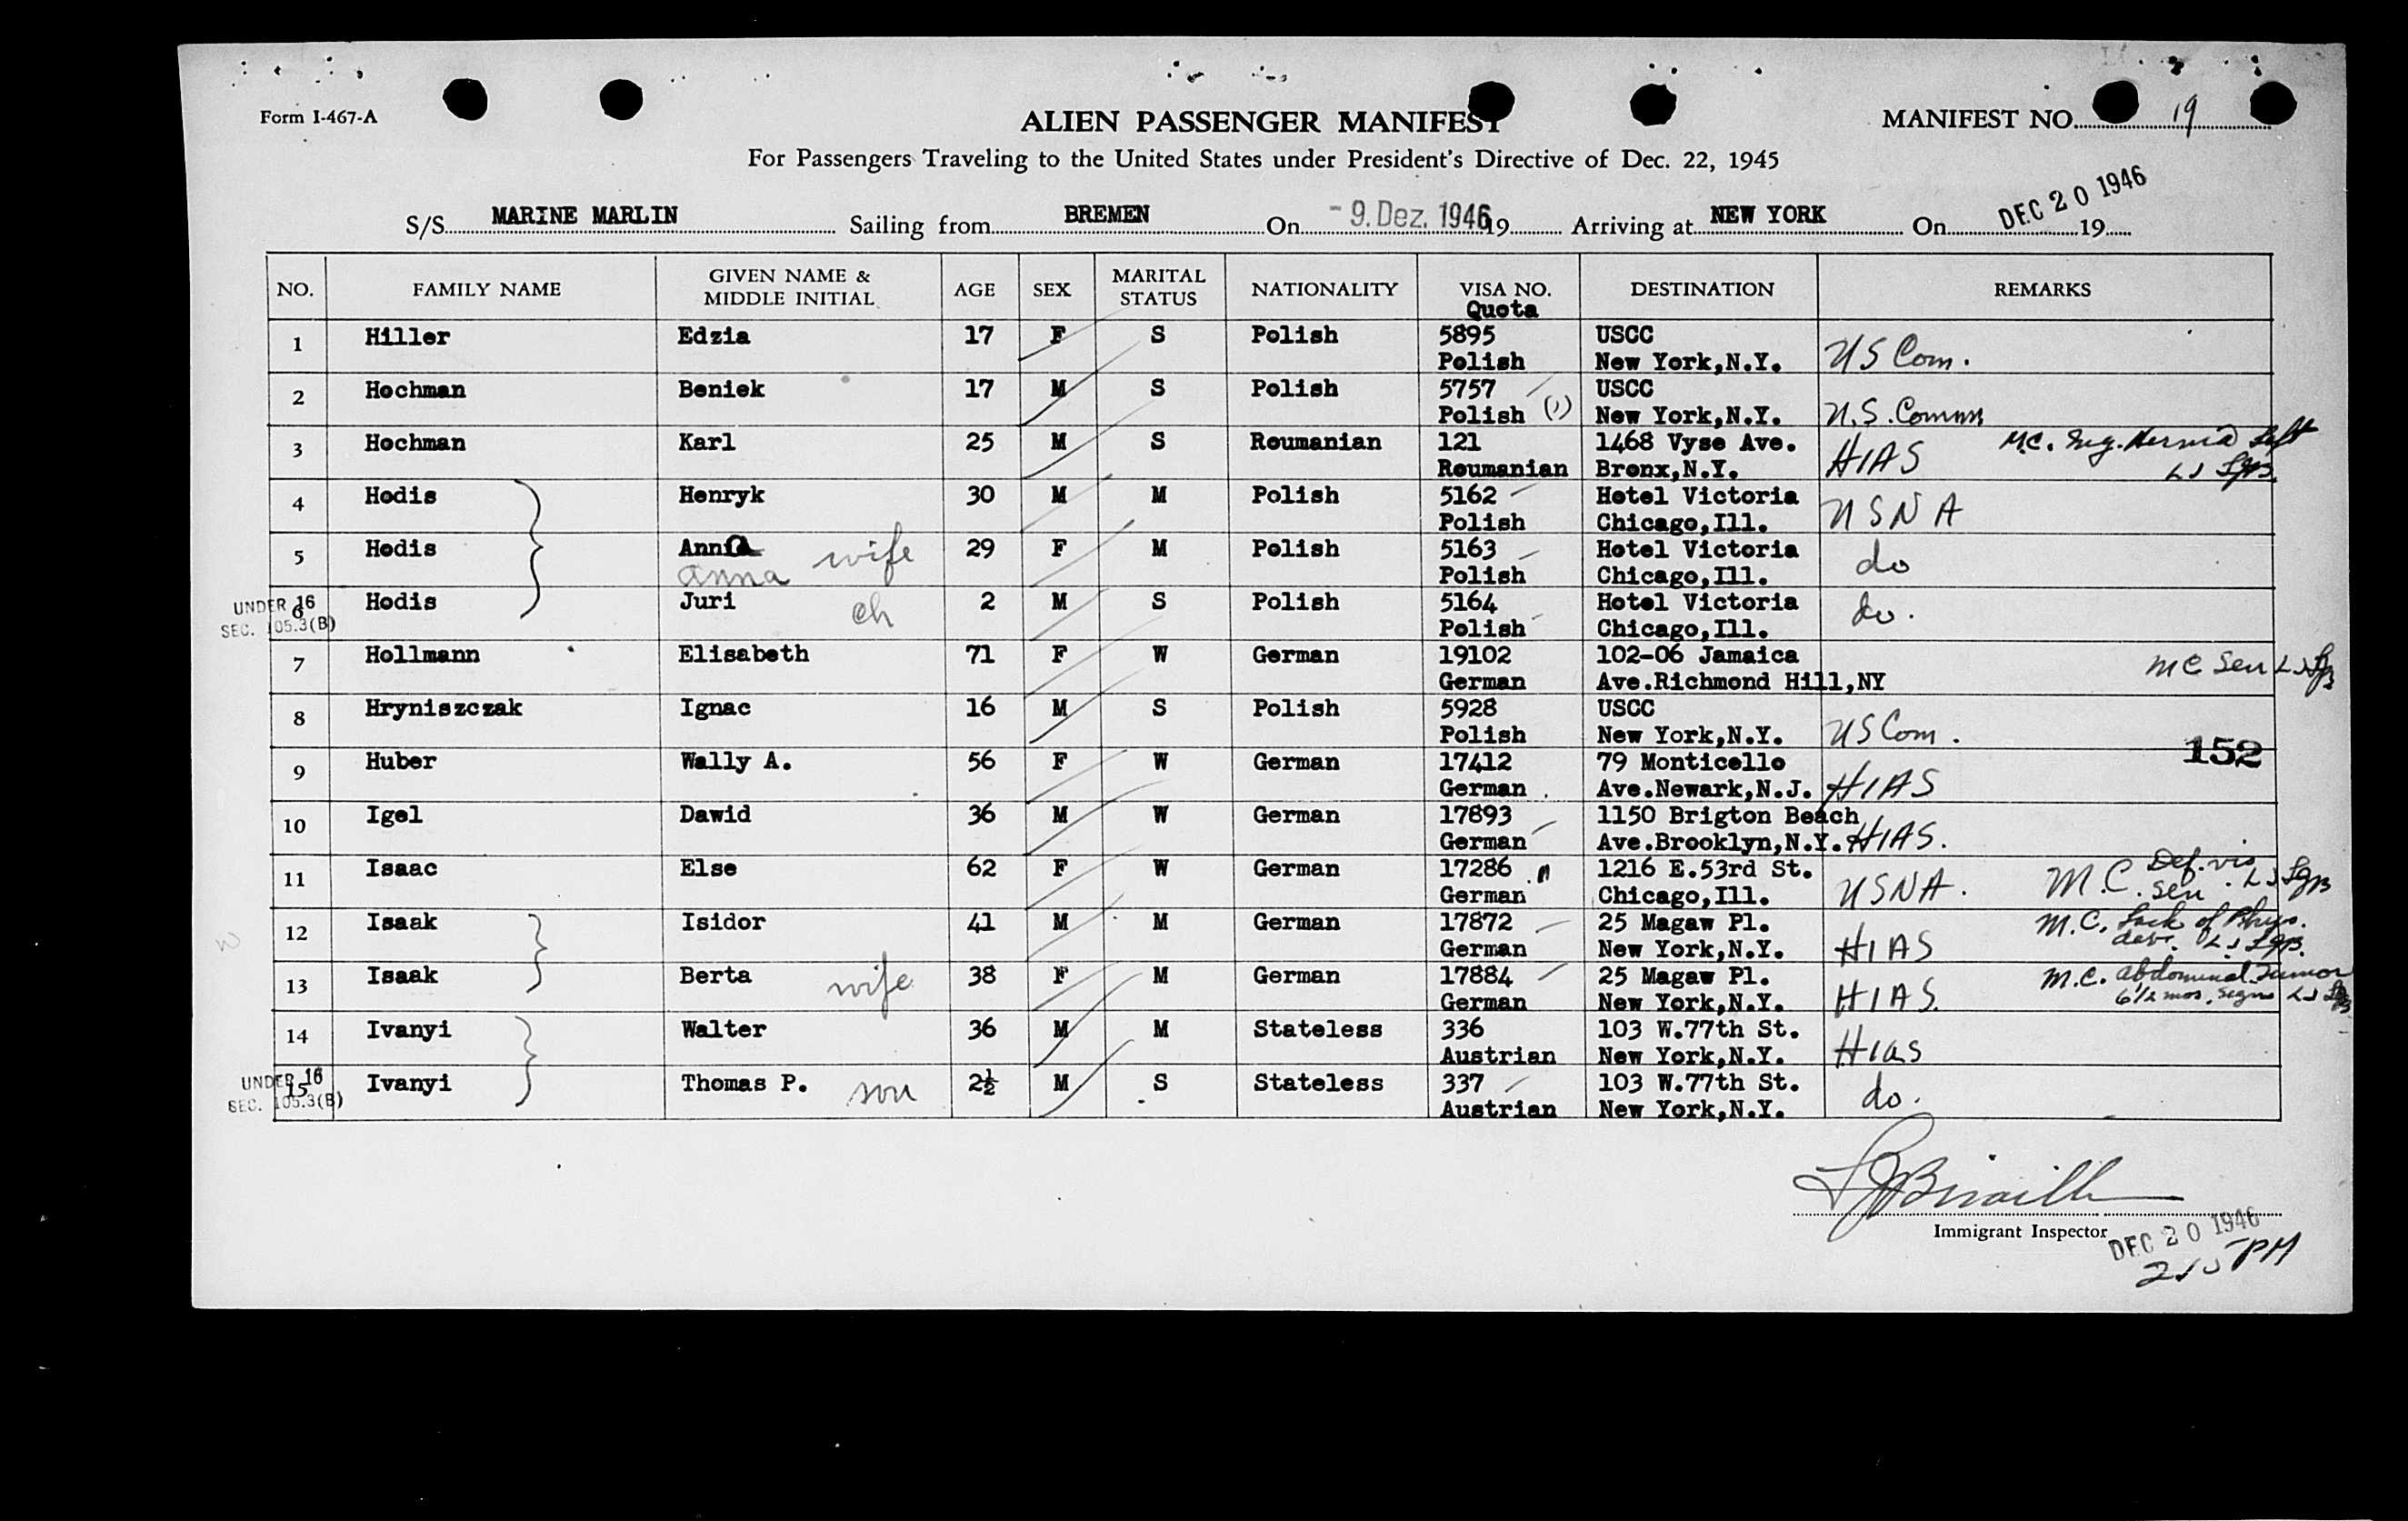 Form I-467-A
ALIEN PASSENGER MANIFEST
MANIFEST NO. 19
For Passengers Traveling to the United States under President's Directive of Dec. 22, 1945
S/S MARINE MARLIN Sailing from BREMEN On - 9. Dez. 1946 19 Arriving at NEW YORK On DEC 20 1946 19
NO. FAMILY NAME GIVEN NAME & MIDDLE INITIAL AGE SEX MARITAL STATUS NATIONALITY VISA NO. Quota DESTINATION REMARKS
1 Hiller Edzia 17 F S Polish 5895 USCC
Polish New York,N.Y. US Com.
2 Hochman Beniek 17 M S Polish 5757 USCC
Polish (1) New York,N.Y. U.S. Comm
3 Hochman Karl 25 M S Roumanian 121 1468 Vyse Ave. M.C. Ing. Hernia Left
Roumanian Bronx,N.Y. HIAS
4 Hodis Henryk 30 M M Polish 5162 Hotel Victoria
Polish Chicago,Ill. USNA
5 Hodis Annia wife 29 F M Polish 5163 Hotel Victoria
anna Polish Chicago,Ill. do
UNDER 16
SEC. 105.3(B)
6 Hodis Juri ch 2 M S Polish 5164 Hotel Victoria
Polish Chicago,Ill. do.
7 Hollmann Elisabeth 71 F W German 19102 102-06 Jamaica MC Sen
German Ave.Richmond Hill,NY
8 Hryniszczak Ignac 16 M S Polish 5928 USCC
Polish New York,N.Y. US Com.
152
9 Huber Wally A. 56 F W German 17412 79 Monticello
German Ave.Newark,N.J. HIAS
10 Igel Dawid 36 M W German 17893 1150 Brigton Beach
German Ave.Brooklyn,N.Y. HIAS.
11 Isaac Else 62 F W German 17286 1216 E.53rd St. M.C. Def. vis
German Chicago,Ill. USNA. sen.
12 Isaak Isidor 41 M M German 17872 25 Magaw Pl. M.C. Lack of Phys.
German New York,N.Y. HIAS dev.
13 Isaak Berta wife 38 F M German 17884 25 Magaw Pl. M.C. abdominal Tumor
German New York,N.Y. HIAS. 6½ mos.
14 Ivanyi Walter 36 M M Stateless 336 103 W.77th St.
Austrian New York,N.Y. HIAS
UNDER 16
SEC. 105.3(B)
15 Ivanyi Thomas P. son 2½ M S Stateless 337 103 W.77th St.
Austrian New York,N.Y. do.
Immigrant Inspector
DEC 20 1946
PM